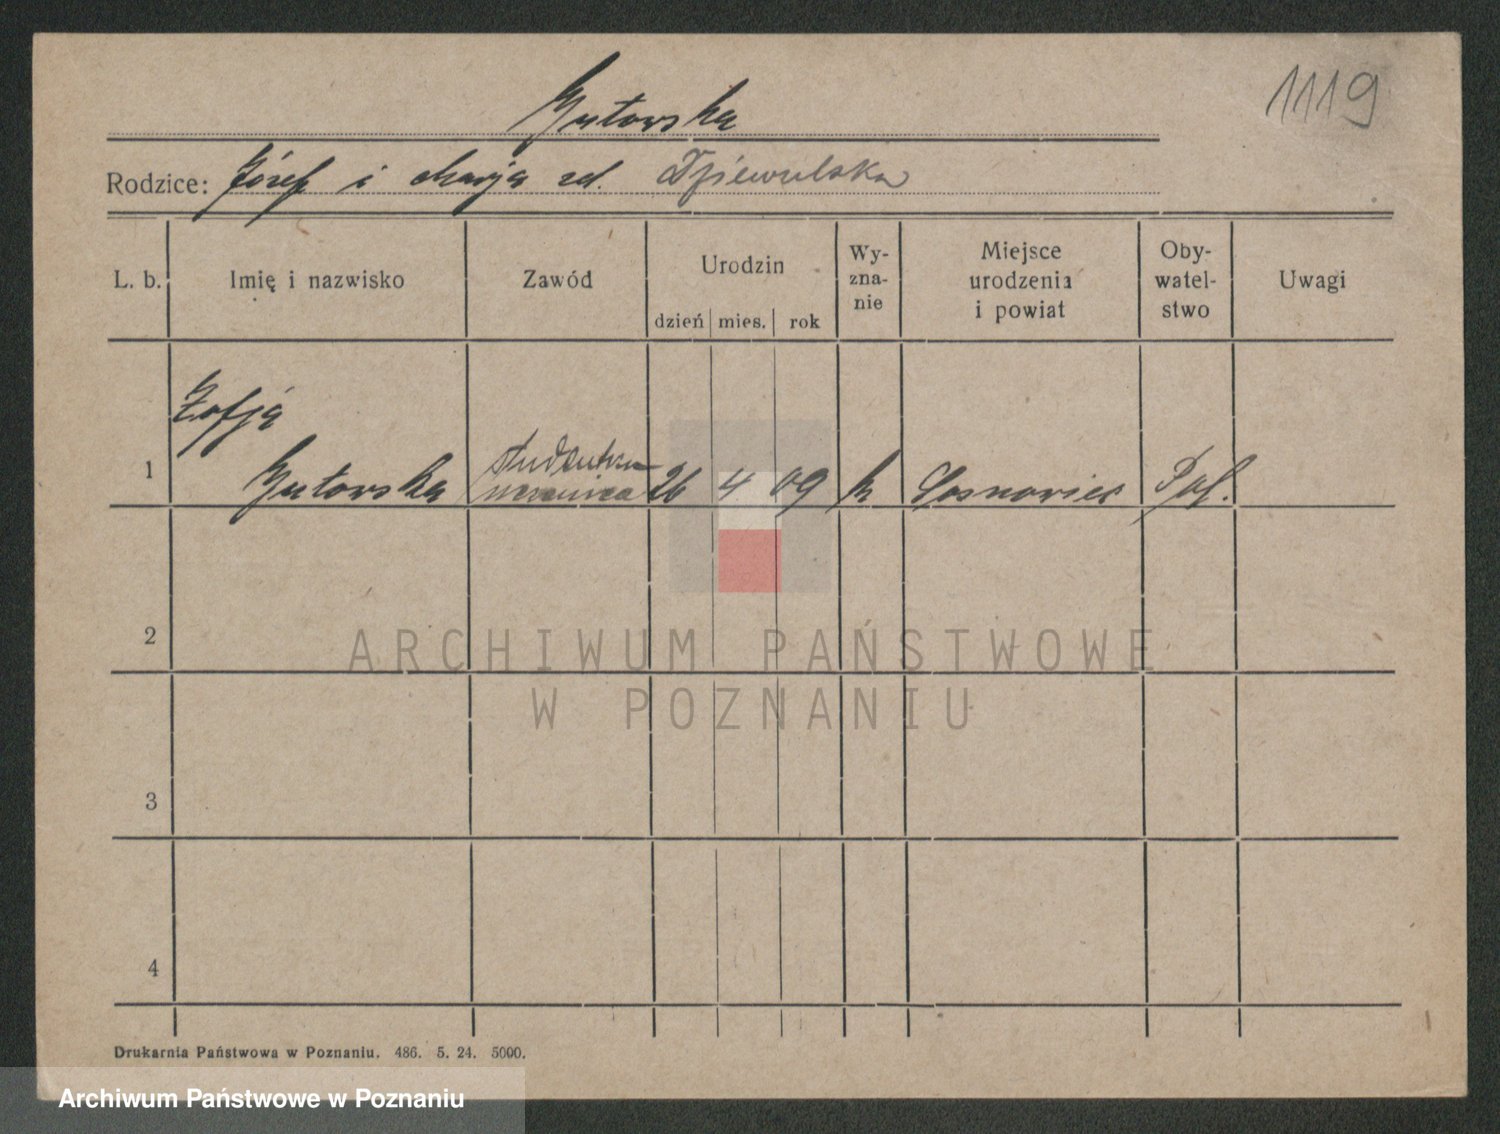 1119
Gutowska
Rodzice: Józef i Marja zd. Dziewulska
L. b.
Imię i nazwisko
Zawód
Urodzin
dzień mies. rok
Wy-
zna-
nie
Miejsce
urodzenia
i powiat
Oby-
watel-
stwo
Uwagi
Zofja
studentka
1 Gutowska uczenica 26 4 09 k Sosnowiec Pol.
2
3
4
ARCHIWUM PAŃSTWOWE
W POZNANIU
Drukarnia Państwowa w Poznaniu. 486. 5. 24. 5000.
Archiwum Państwowe w Poznaniu